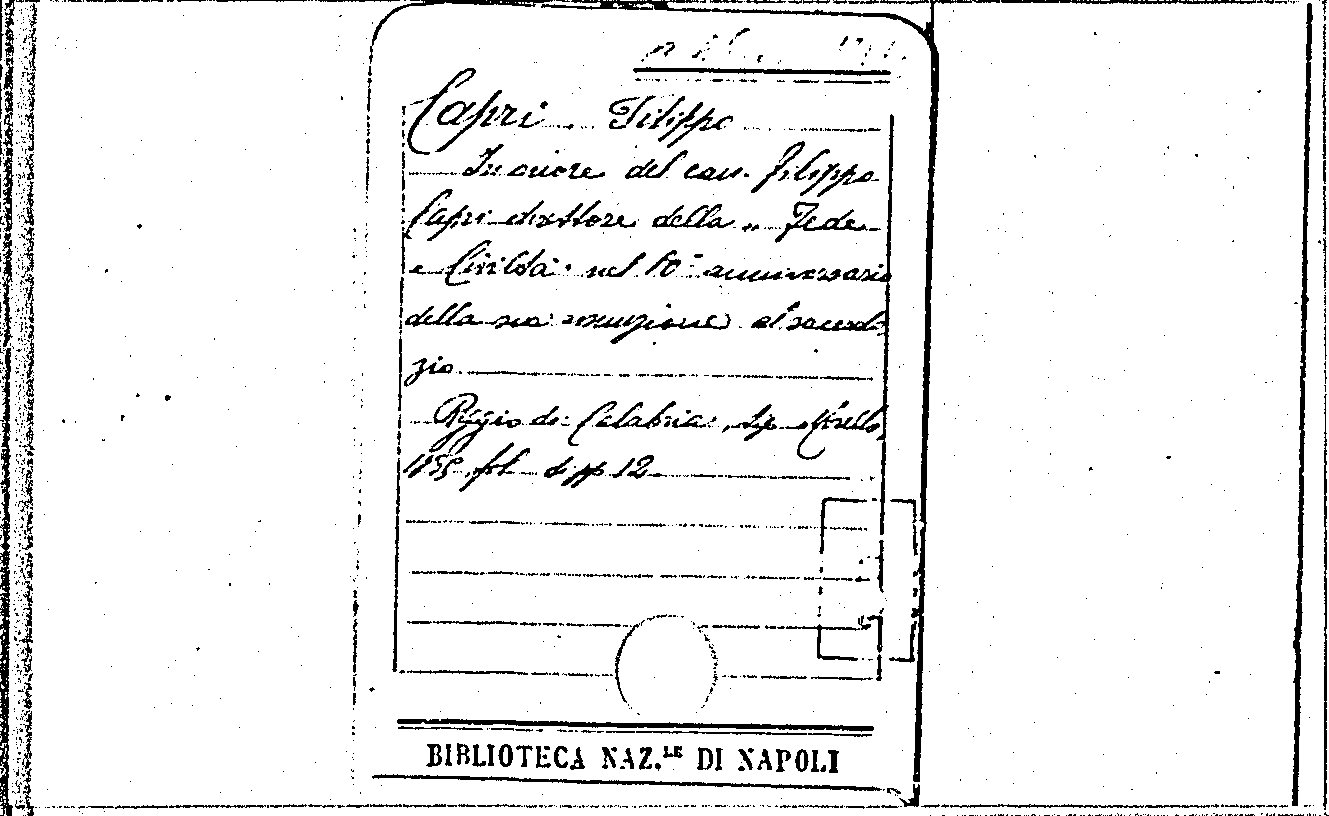 Capri Filippo
In onore del can. Filippo
Capri direttore della „ Fede
e Civiltà" nel 50° anniversario
della sua assunzione al sacerdo
zio
Reggio di Calabria, tip. Morello,
fol. di pp 12
BIBLIOTECA NAZ.LE DI NAPOLI